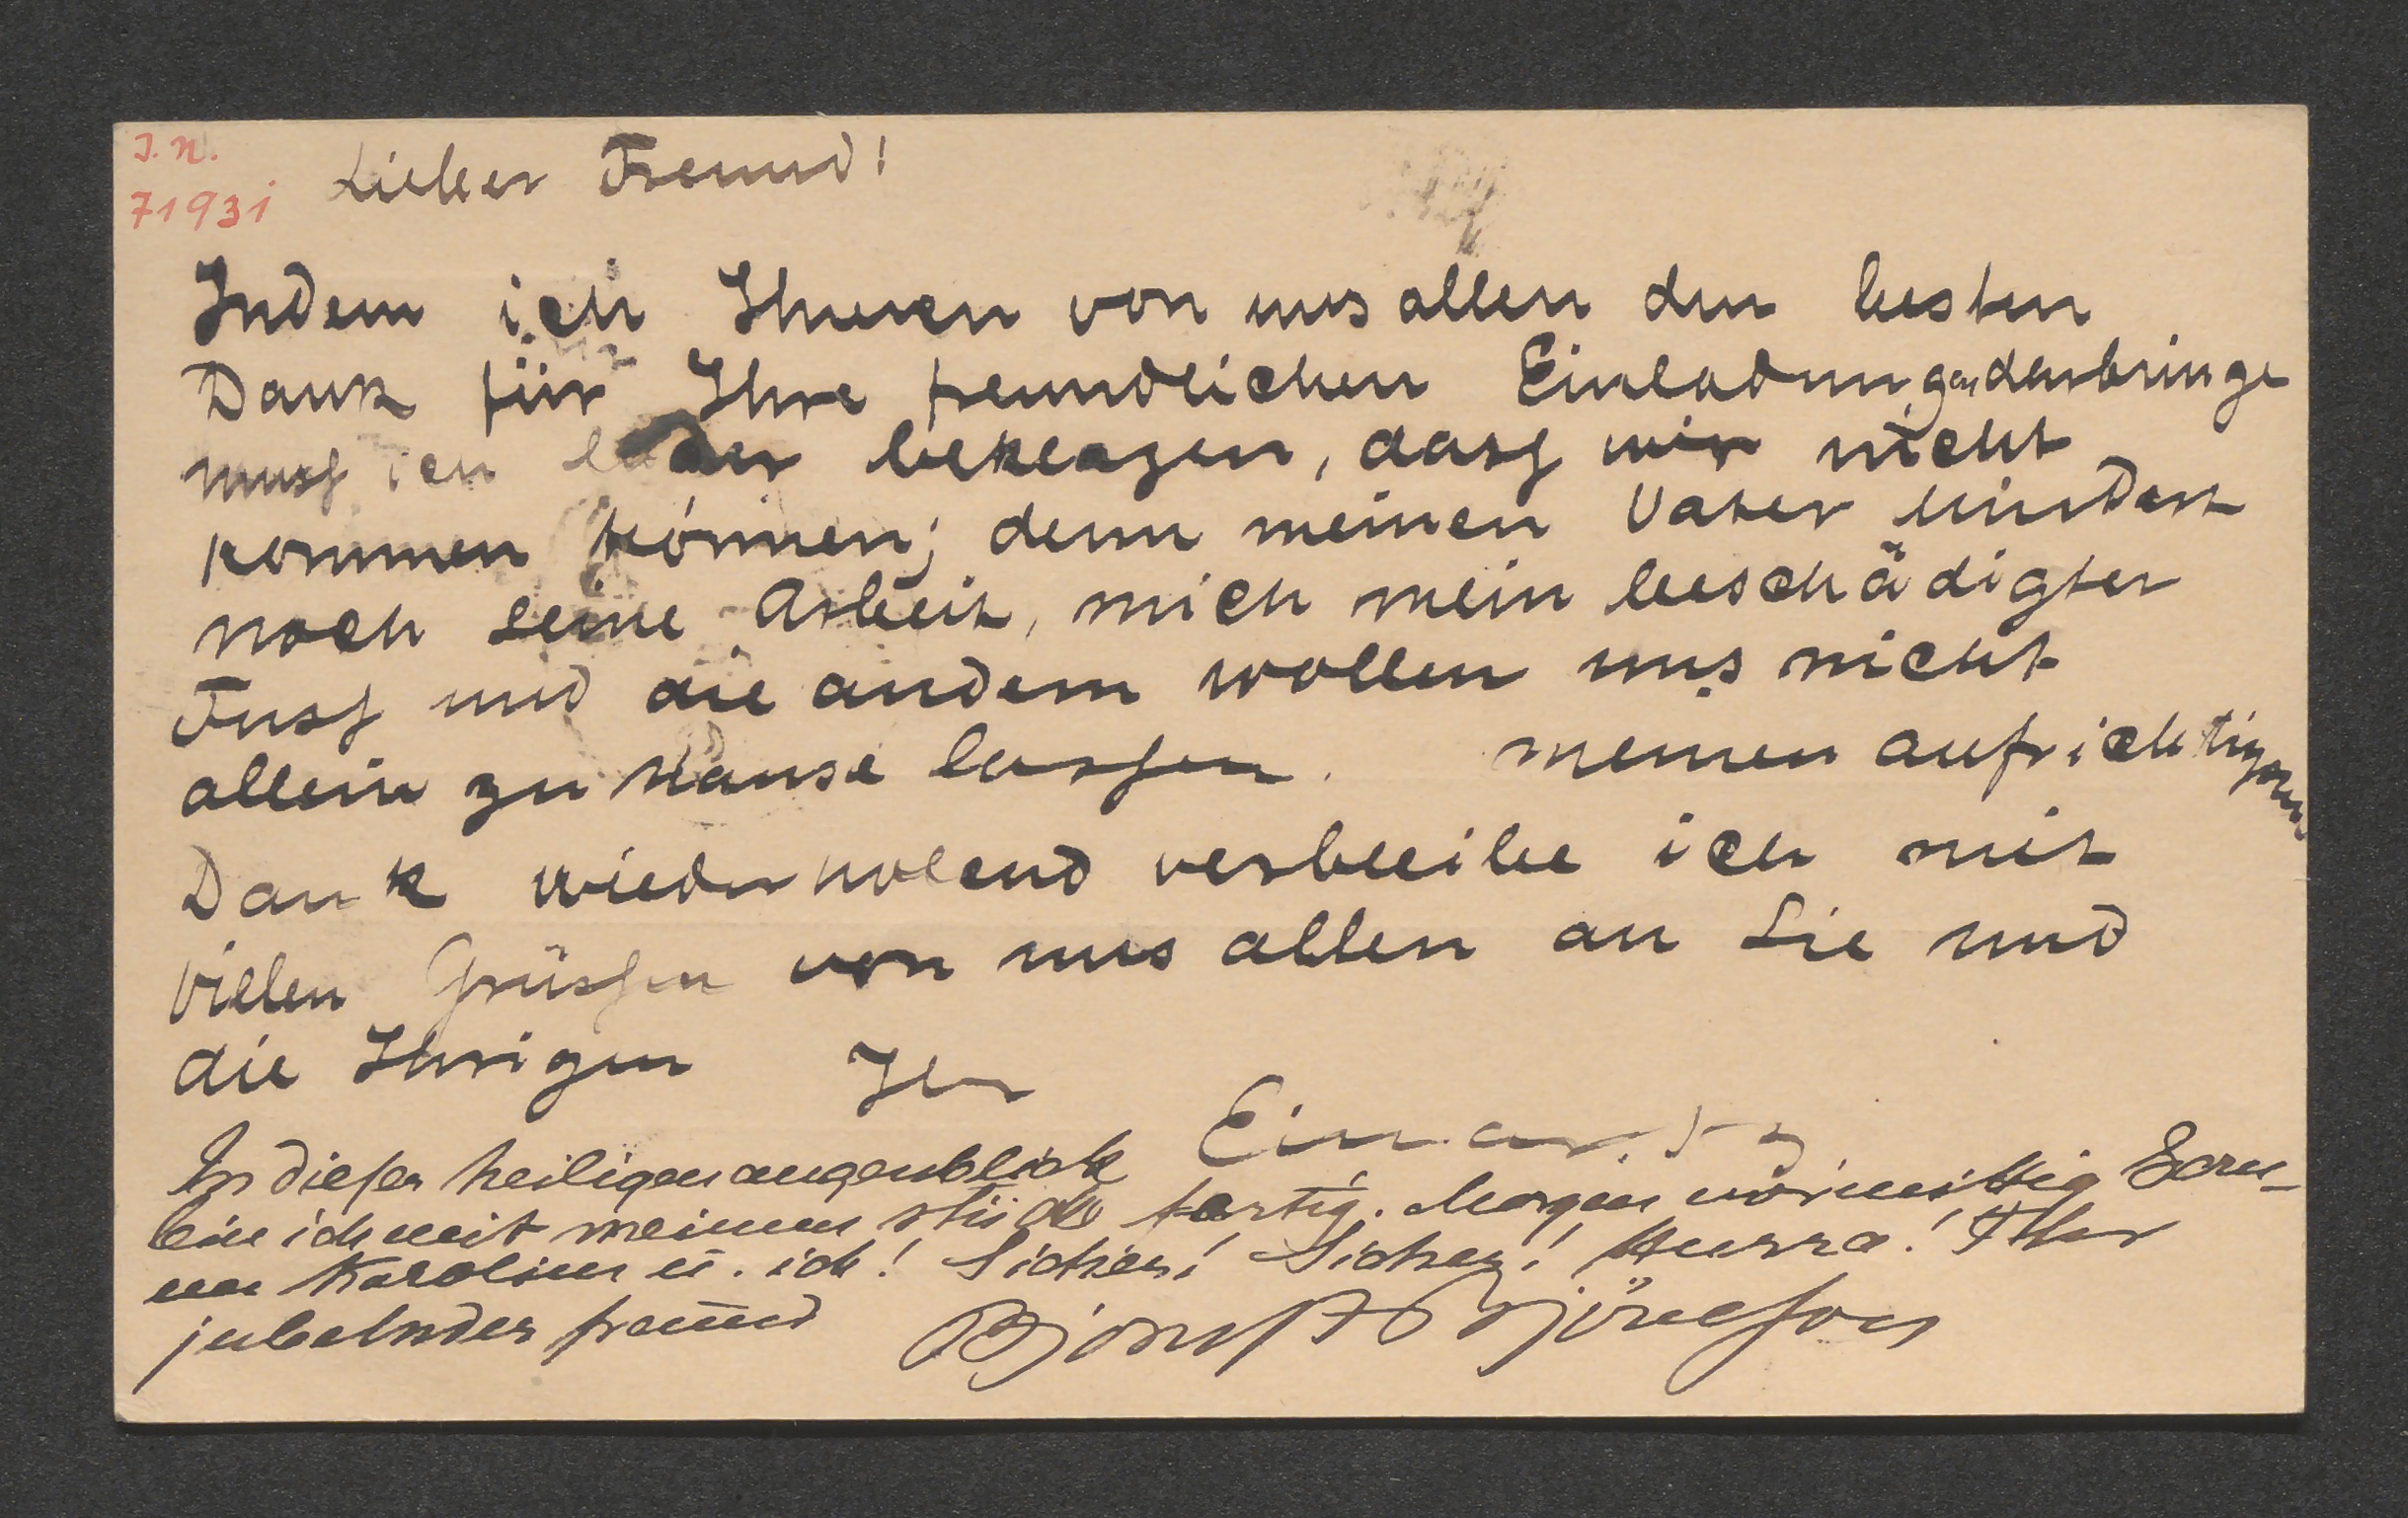 J. N.
71931
Lieber Freund!
Indem ich Ihnen von uns allen den besten
Dank für Ihre freundlichen Einladungen darbringe
muss ich leider beklagen, dass wir nicht
kommen können; denn meinen Vater hindert
noch seine Arbeit, mich mein beschädigter
Fuss und die andern wollen uns nicht
allein zu Hause lassen. meinen aufrichtigsten
Dank wiederholend verbleibe ich mit
vielen Grüssen von uns allen an Sie und
die Ihrigen Ihr
Einar
In dieser heiligen augenblick
bin ich mit meinem stücke fertig. Morgen vormittig
Karolin u. ich! Sicher! Sicher! Hurra! Ihr
jubelnder freund Björnst Björnson